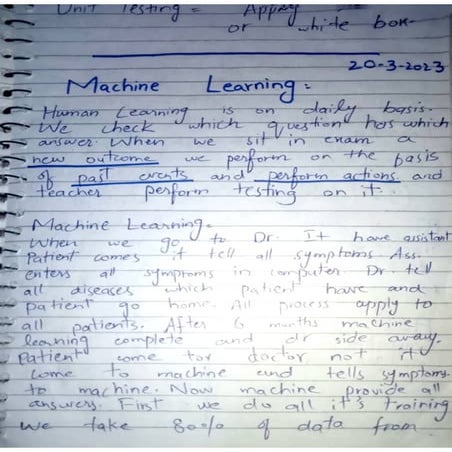 Unit Testing = Apply
or white box
20-3-2023
Machine Learning:
Human Learning is on daily basis.
We check which question has which
answer. When we sit in exam a
new outcome we perform on the basis
of past events and perform actions and
teacher perform testing on it.
Machine Learning.
When we go to Dr. It have assistant
Patient comes it tell all symptoms. Ass.
enters all symptoms in computer. Dr tell
all diseases which patient have and
patient go home. All process apply to
all patients. After 6 months machine
learning complete and dr side away.
Patient come for doctor not it
come to machine and tells symptoms
to machine. Now machine provide all
answers. First we do all it's training
we take 80% of data from